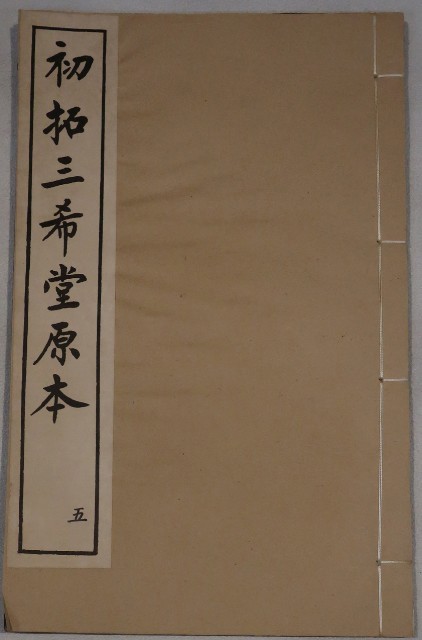 初拓三希堂原本
五